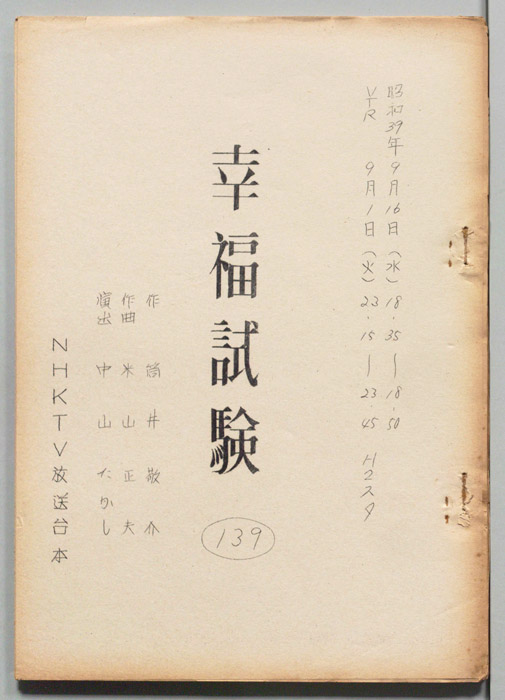 昭和39年9月16日（水）18.35～18.50
VTR 9月1日（火）23.15～23.45 H2スタ
幸福試験
139
作 筒井敬介
作曲 米山正夫
演出 中山たかし
NHKTV放送台本